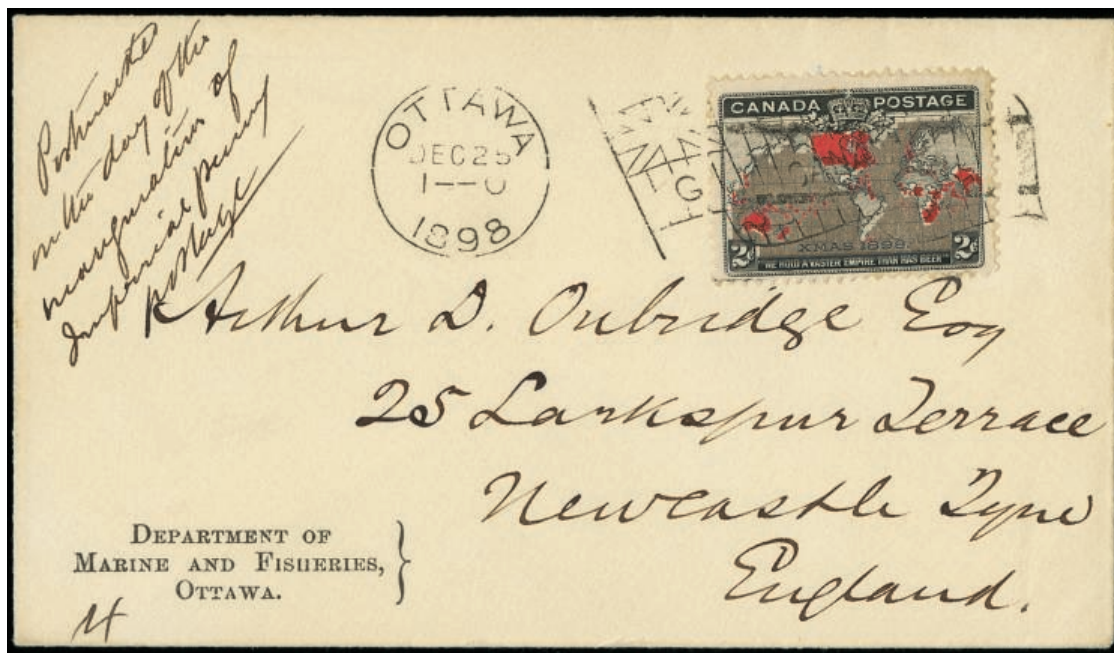 Postmarked
on the day of the
inauguration of
Imperial penny
postage
OTTAWA
DEC 25
1--0
1898
CANADA POSTAGE
XMAS 1898
2¢ 2¢
WE HOLD A VASTER EMPIRE THAN HAS BEEN
Arthur D. Oubridge Esq
25 Larkspur Terrace
Newcastle Tyne
England.
DEPARTMENT OF
MARINE AND FISHERIES,
OTTAWA.